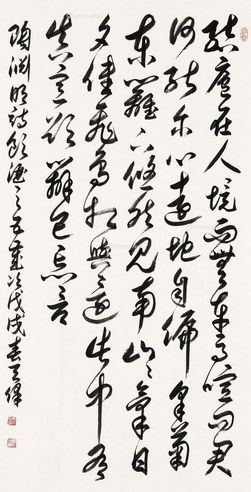 結廬在人境而無車馬喧問君
何能爾心遠地自偏采菊
東籬下悠然見南山山氣日
夕佳飛鳥相與還此中有
真意欲辯已忘言
陶淵明詩飲酒之五歲次戊戌春